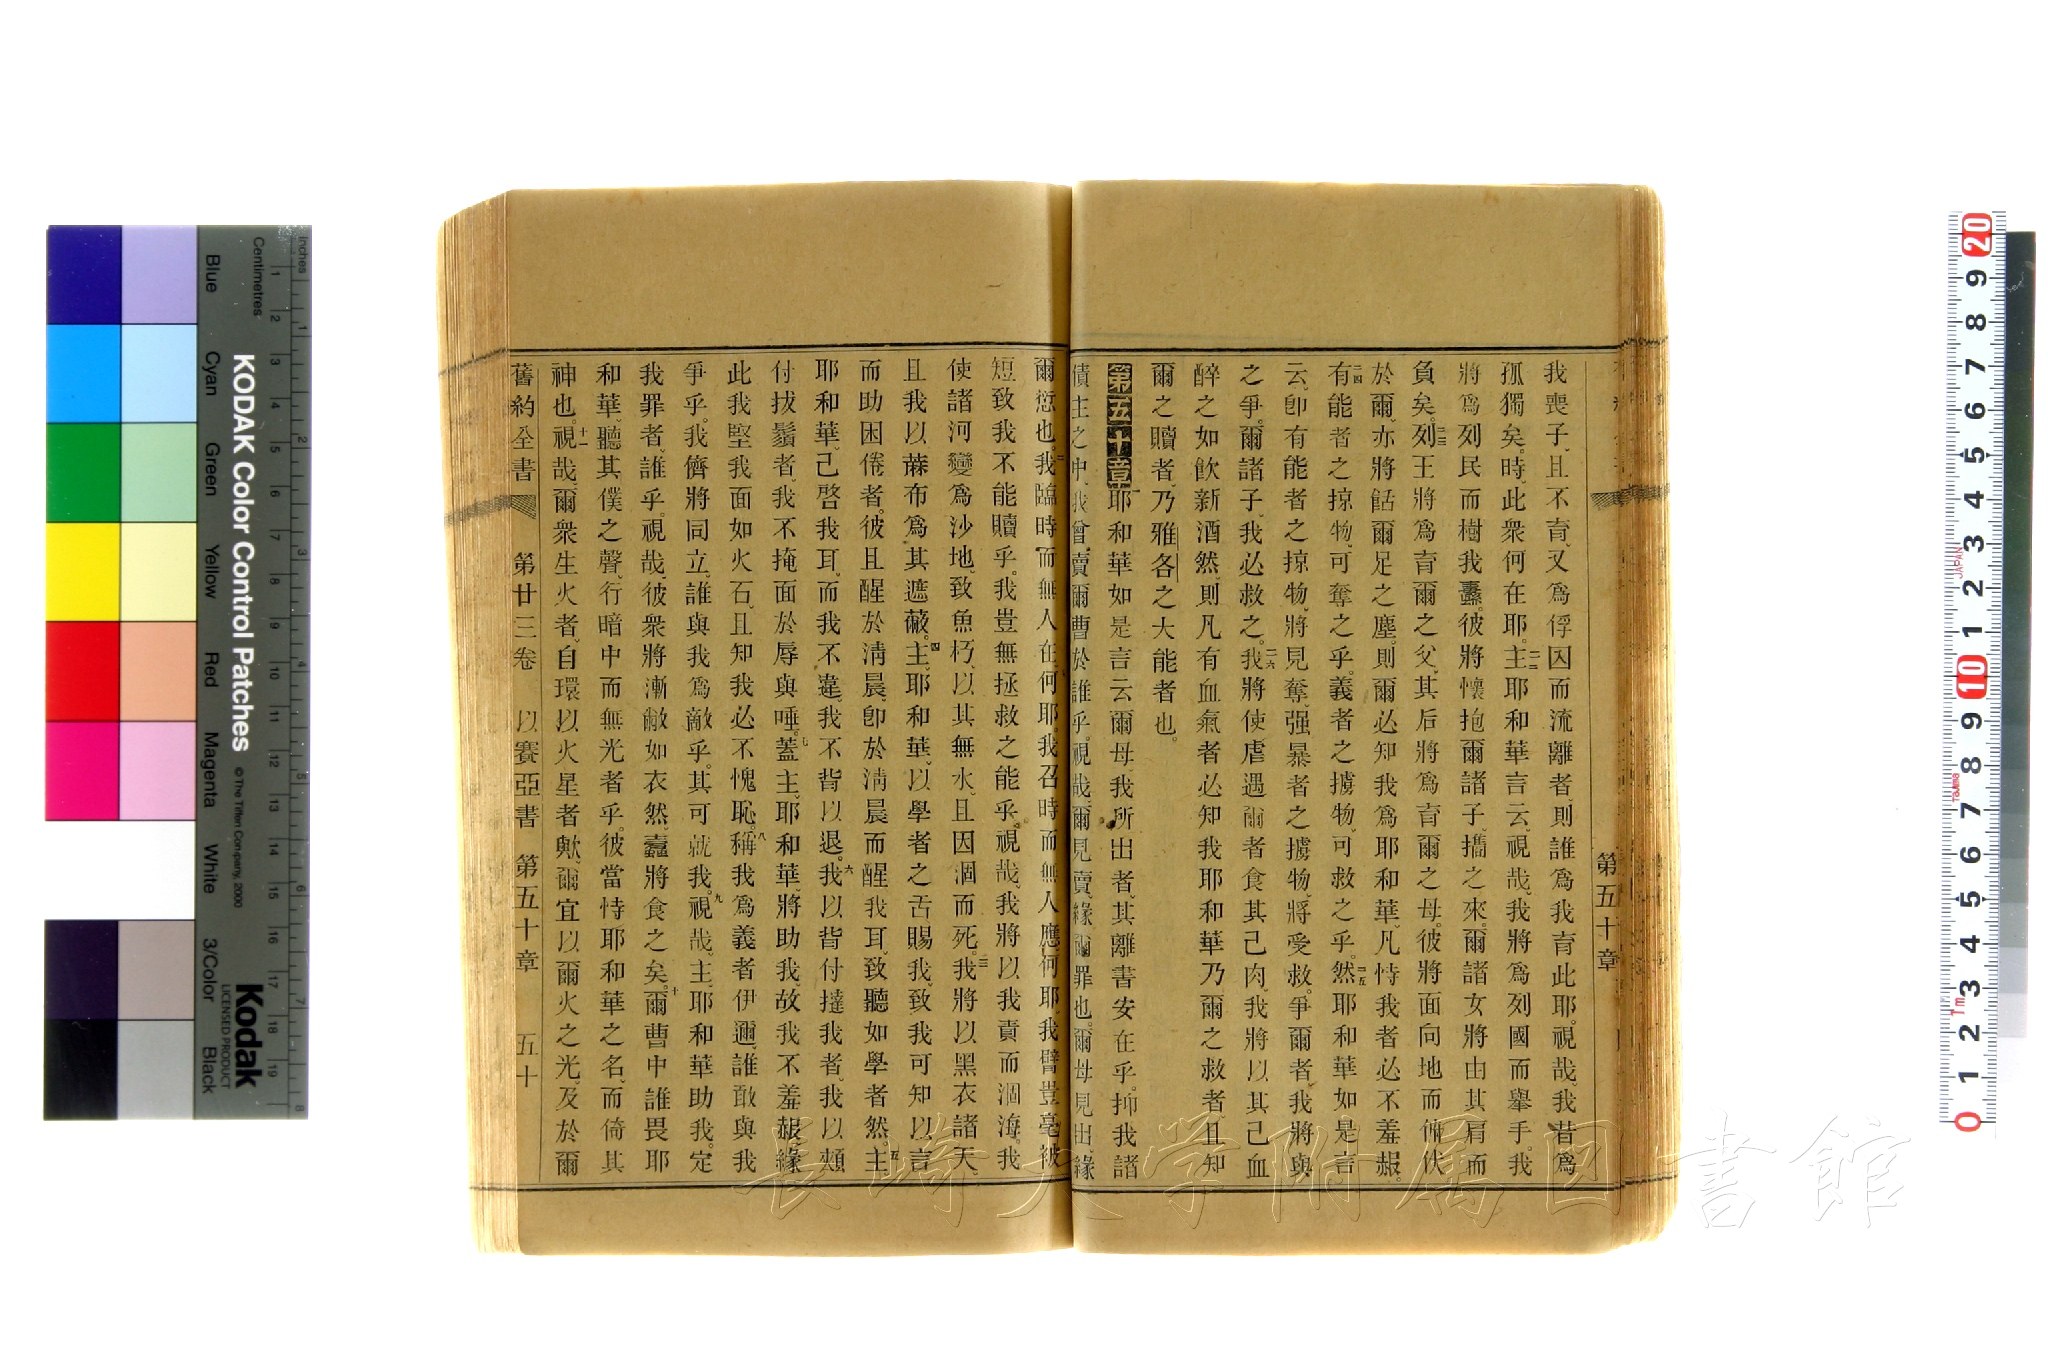 第五十章
我喪子、且不育、又爲俘囚而流離者、則誰爲我育此耶。視哉、我昔爲
孤獨矣。時、此衆何在耶。二二主耶和華言云、視哉、我將爲列國而舉手。我
將爲列民而樹我纛。彼將懷抱爾諸子、攜之來。爾諸女將由其肩而
負矣。二三列王將爲育爾之父、其后將爲育爾之母。彼將面向地而俯伏
於爾、亦將餂爾足之塵。則爾必知我爲耶和華、凡恃我者必不羞赧。
二四有能者之掠物、可奪之乎。義者之擄物、可救之乎。二五然耶和華如是言
云、卽有能者之掠物、將見奪、强暴者之擄物、將受救。爭爾者、我將與
之爭。爾諸子、我必救之。二六我將使虐遇爾者食其己肉、我將以其己血
醉之如飮新酒然、則凡有血氣者必知我耶和華乃爾之救者、且知
爾之贖者、乃雅各之大能者也。
第五十章一耶和華如是言云爾母我所出者、其離書安在乎。抑我諸
債主之中、我曾賣爾曹於誰乎。視哉、爾見賣、緣爾罪也。爾母見出、緣
爾愆也。二我臨時而無人在、何耶。我召時而無人應、何耶。我臂豈毫被
短致我不能贖乎。我豈無拯救之能乎。視哉、我將以我責而涸海。我
使諸河變爲沙地、致魚朽、以其無水、且因涸而死。三我將以黑衣諸天、
且我以蔴布爲其遮蔽。四主耶和華、以學者之舌賜我、致我可知以言
而助困倦者。彼且醒於淸晨、卽於淸晨而醒我耳、致聽如學者然。五主
耶和華、已啓我耳、而我不違、我不背以退。六我以背付撻我者。我以頰
付拔鬚者、我不掩面於辱與唾。七蓋主耶和華、將助我、故我不羞赧、緣
此我堅我面如火石、且知我必不愧恥。八稱我爲義者伊邇、誰敢與我
爭乎。我儕將同立。誰與我爲敵乎。其可就我。九視哉、主耶和華助我。定
我罪者、誰乎。視哉、彼衆將漸敝如衣然、蠧將食之矣。十爾曹中誰畏耶
和華、聽其僕之聲、行暗中而無光者乎。彼當恃耶和華之名、而倚其
神也。十一視哉、爾衆生火者、自環以火星者歟、爾宜以爾火之光、及於爾
舊約全書 第廿三卷 以賽亞書 第五十章 五十
長崎大学附属図書館
KODAK Color Control Patches
© The Tiffen Company, 2000
Kodak
LICENSED PRODUCT
Inches
Centimetres
Blue
Cyan
Green
Yellow
Red
Magenta
White
3/Color
Black
1 2 3 4 5 6 7 8
1 2 3 4 5 6 7 8 9 10 11 12 13 14 15 16 17 18 19
20 9 8 7 6 5 4 3 2 1 10 9 8 7 6 5 4 3 2 1 0
JAPAN